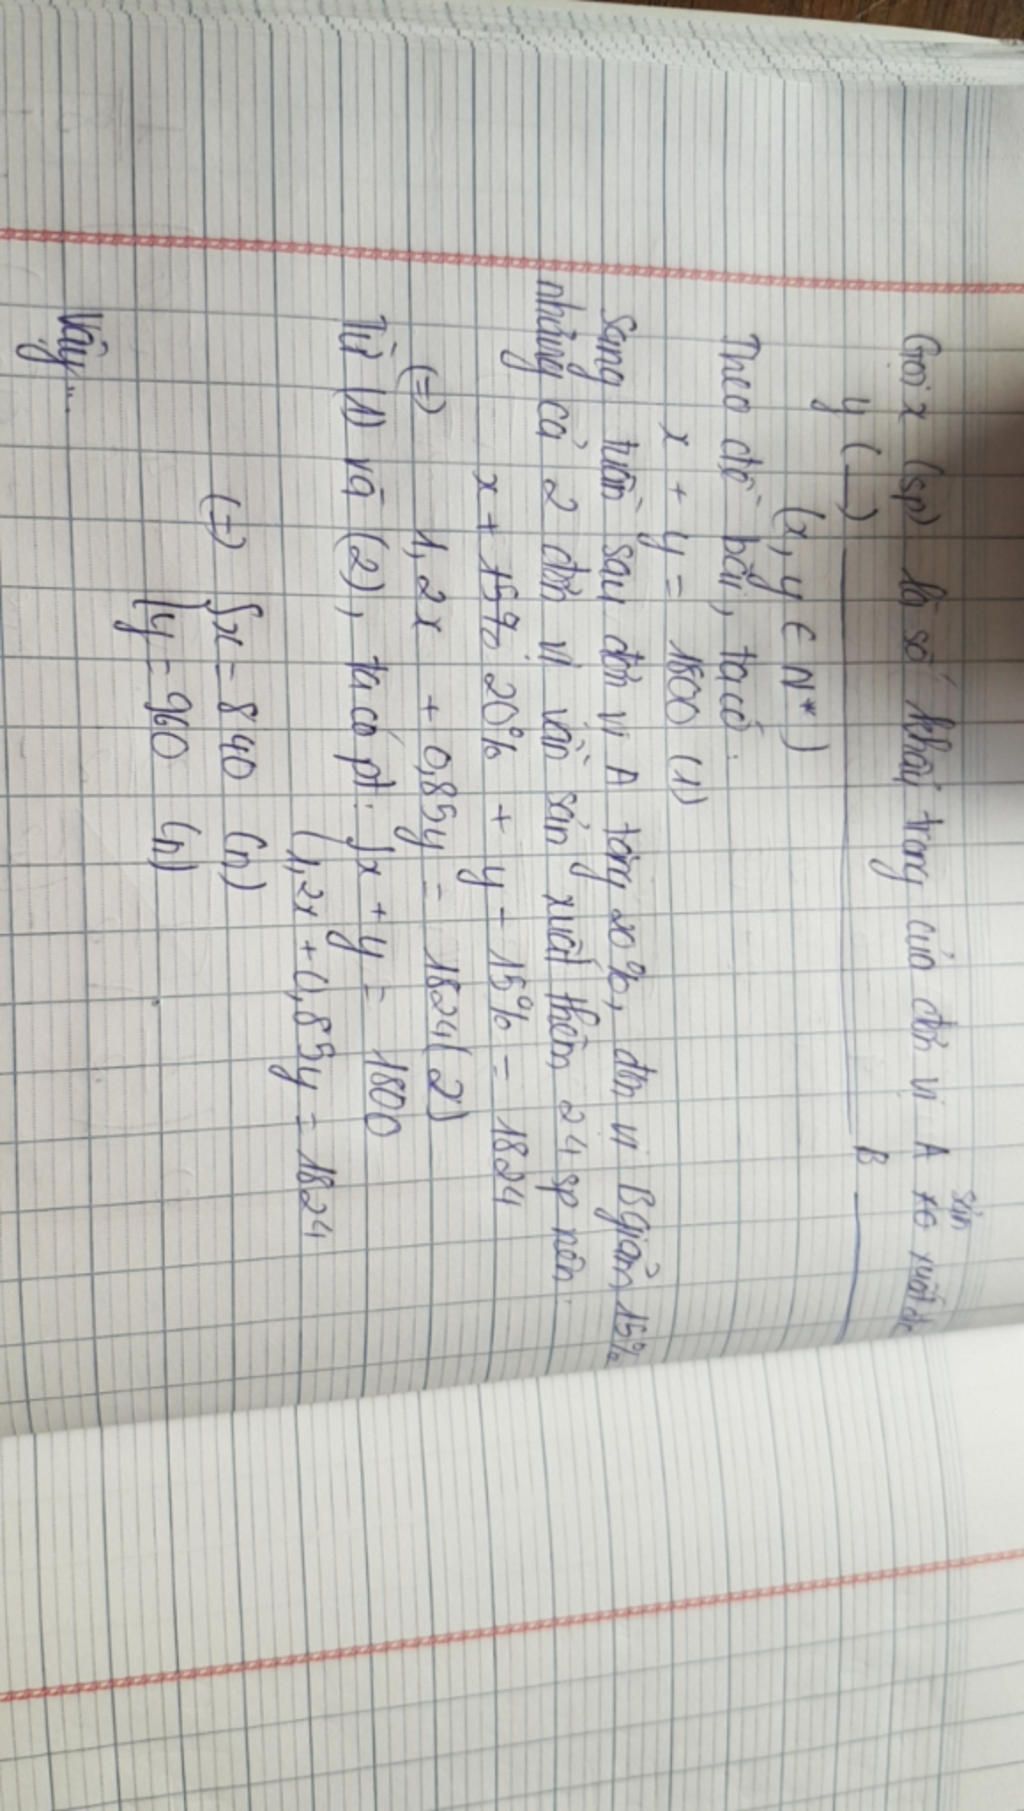 Gọi x (sp) là số khẩu trang của đơn vị A sản xuất đc
y (__) ______ B ______
(x, y ∈ N*)
Theo đề bài, ta có:
x + y = 1800 (1)
Sang tuần sau đơn vị A tăng 20%, đơn vị B giảm 15%
nhưng cả 2 đơn vị vẫn sản xuất thêm 24 sp nên:
x + 20% + y - 15% = 1824
(=) 1,2x + 0,85y = 1824 (2)
Từ (1) và (2), ta có pt: { x + y = 1800
1,2x + 0,85y = 1824
(=) { x = 840 (n)
y = 960 (n)
Vậy...